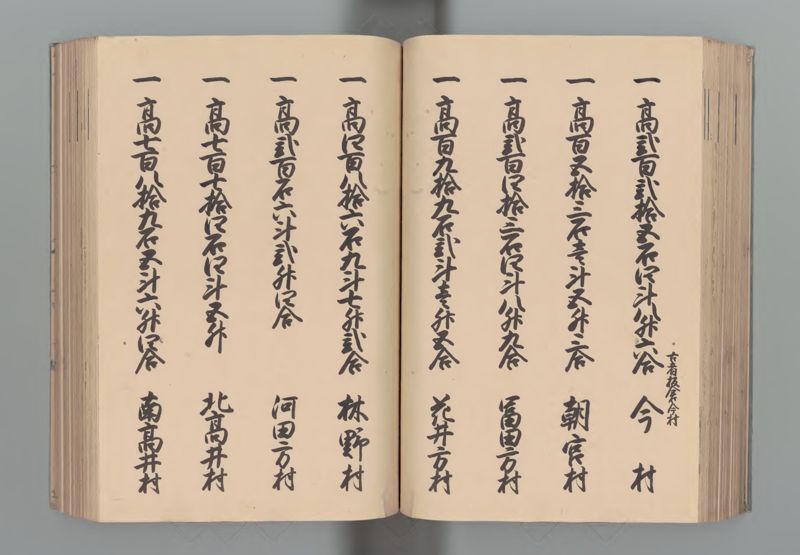 一 高弐百弐拾五石四斗八升六合 今村
古者板倉今村
一 高百五拾三石壱斗五升二合 朝宮村
一 高弐百四拾三石四斗八升九合 冨田方村
一 高百九拾九石弐斗壱升五合 花井方村
一 高四百八拾六石九斗七升弐合 林野村
一 高弐百石六斗弐升四合 河田方村
一 高七百十拾四石四斗五升 北高井村
一 高七百八拾九石五斗六升四合 南高井村